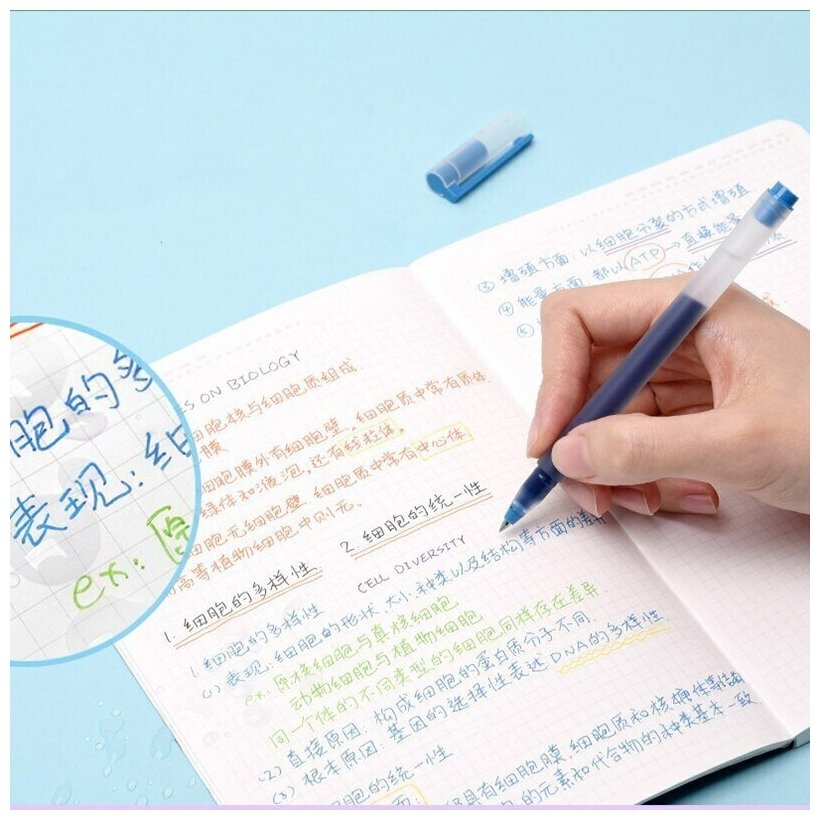 胞的多
表现:细
ex: 原
S ON BIOLOGY
细胞核与细胞质组成.
膜
细胞膜外有细胞壁. 细胞质中常有质体
绿体和液泡, 还有线粒体.
细胞无细胞壁 细胞质中常有中心体
高等植物细胞中则无.
1. 细胞的多样性.
2 细胞的统一性
CELL DIVERSITY
1. 细胞的多样性
(1) 表现: 细胞的形状 大小, 种类以及结构等方面的差异
ex: 原核细胞与真核细胞
动物细胞与植物细胞
同一个体的不同类型的细胞同样存在差异.
(2) 直接原因: 构成细胞的蛋白质分子不同.
(3) 根本原因: 基因的选择性表达 DNA的多样性
细胞的统一性
都具有细胞膜, 细胞质和核
的元素和化合物的种类基本一致.
③ 增殖方面: 以细胞分裂的方式增殖
④ 能量方面: 都以ATP→直接能
⑤